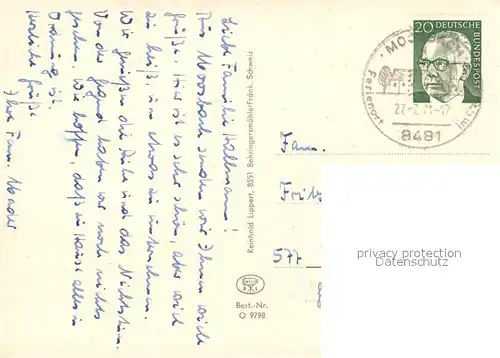 Liebe Familie Hallmann!
Aus Moosbach senden wir Ihnen viele
Grüße. Hier ist es sehr schön, aber viel
zu heiß, um etwas zu unternehmen.
Wir genießen die Ruhe und das Nichtstun.
Von der Jugend haben wir noch nichts
gesehen. Wir hoffen, daß zu Hause alles in
Ordnung ist.
Herzliche Grüße
Ihre Fam. Mader
Reinhold Lippert, 8551 Behringersmühle/Fränk. Schweiz
Best.-Nr.
O 9798
20 DEUTSCHE
BUNDESPOST
MO
Ferienort
27.-7.71-17
8481
Fam.
Fritz
577
privacy protection
Datenschutz